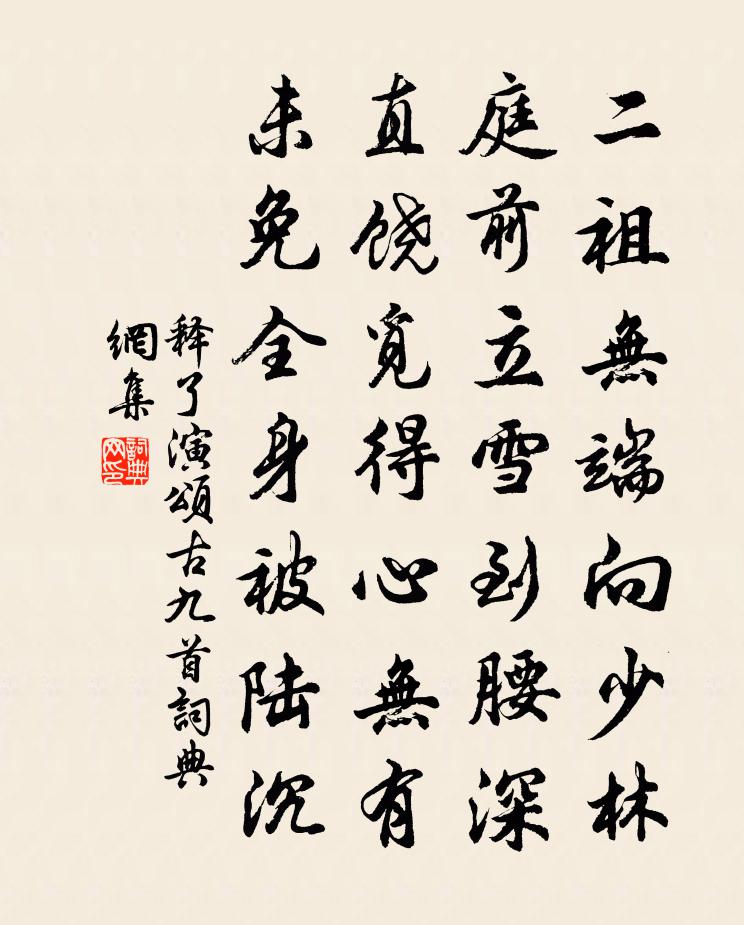 二祖無端向少林
庭前立雪到腰深
直饶覓得心無有
未免全身被陆沉
释了演頌古九首詞典
網集
詞典
网印